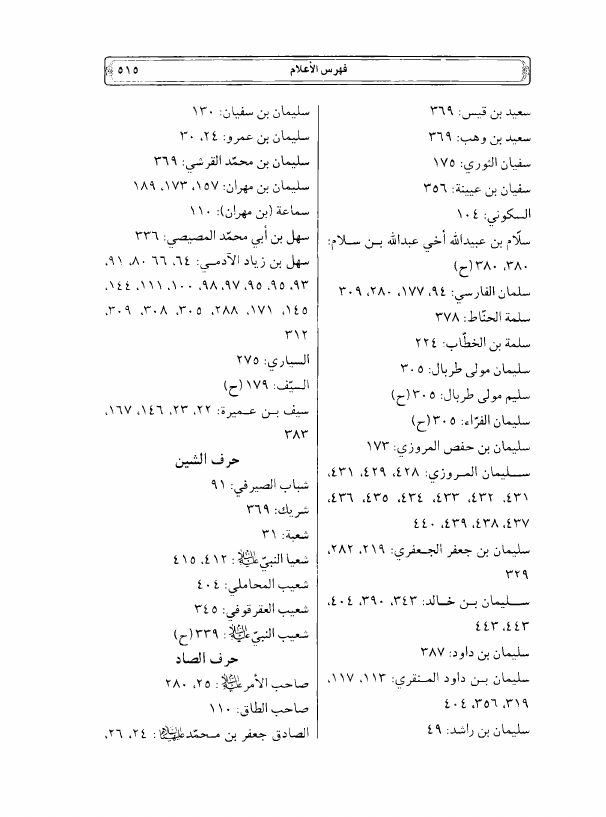 فهرس الأعلام ٥١٥
سعيد بن قيس: ٣٦٩
سعيد بن وهب: ٣٦٩
سفيان الثوري: ١٧٥
سفيان بن عيينة: ٣٥٦
السكوني: ١٠٤
سلّام بن عبيدالله أخي عبدالله بـن سـلام:
٣٨٠، ٣٨٠(ح)
سلمان الفارسي: ٩٤، ١٧٧، ٢٨٠، ٣٠٩
سلمة الحنّاط: ٣٧٨
سلمة بن الخطّاب: ٢٢٤
سليمان مولى طربال: ٣٠٥
سليم مولى طربال: ٣٠٥(ح)
سليمان الفرّاء: ٣٠٥(ح)
سليمان بن حفص المروزي: ١٧٣
سـليمان المـروزي: ٤٢٨، ٤٢٩، ٤٣١،
٤٣١، ٤٣٢، ٤٣٣، ٤٣٤، ٤٣٥، ٤٣٦،
٤٣٧، ٤٣٨، ٤٣٩، ٤٤٠
سليمان بن جعفر الجـعفري: ٢١٩، ٢٨٢،
٣٢٩
سـليمان بـن خـالد: ٣٤٣، ٣٩٠، ٤٠٤،
٤٤٣، ٤٤٣
سليمان بن داود: ٣٨٧
سليمان بـن داود المـنقري: ١١٣، ١١٧،
٣١٩، ٣٥٦، ٤٠٤
سليمان بن راشد: ٤٩
سليمان بن سفيان: ١٣٠
سليمان بن عمرو: ٢٤، ٣٠
سليمان بن محمّد القرشي: ٣٦٩
سليمان بن مهران: ١٥٧، ١٧٣، ١٨٩
سماعة (بن مهران): ١١٠
سهل بن أبي محمّد المصيصي: ٣٣٦
سهل بن زياد الآدمـي: ٦٤، ٦٦، ٨٠، ٩١،
٩٣، ٩٥، ٩٥، ٩٧، ٩٨، ١٠٠، ١١١، ١٤٤،
١٤٥، ١٧١، ٢٨٨، ٣٠٥، ٣٠٨، ٣٠٩،
٣١٢
السياري: ٢٧٥
السيّف: ١٧٩(ح)
سيف بـن عـميرة: ٢٢، ٢٣، ١٤٦، ١٦٧،
٣٨٣
حرف الشين
شباب الصيرفي: ٩١
شريك: ٣٦٩
شعبة: ٣١
شعيا النبيّ عليه السلام: ٤١٢، ٤١٥
شعيب المحاملي: ٤٠٤
شعيب العقرقوفي: ٣٤٥
شعيب النبيّ عليه السلام: ٣٣٩(ح)
حرف الصاد
صاحب الأمر عليه السلام: ٢٥، ٢٨٠
صاحب الطاق: ١١٠
الصادق جعفر بن مـحمّد عليهما السلام: ٢٤، ٢٦،